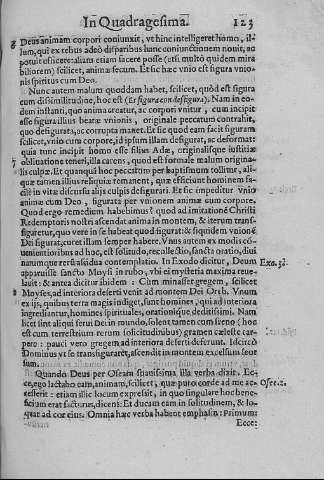 In Quadragesima. 123
Deus animam corpori coniunxit, vt hinc intelligeret homo, il-
lum, qui ex rebus adeò disparibus hanc coniunctionem nouit, ac
potuit efficere: alians etiam facere posse (etsi multò quidem mira
biliorem) scilicet, animæ secum. Et sic hæc vnio est figura vnio-
nis spiritus cum Deo.
Nunc autem malum quoddam habet, scilicet, quòd est figura
cum dissimilitudine, hoc est (Et figura con desfigura). Nam in eo-
dem instanti, quo anima creatur, ac corpori vnitur, cum incipit
esse figura illius beatæ vnionis, originale peccatum contrahit,
quo defigurata, ac corrupta manet. Et sic quod eam facit figuram
scilicet, vnio cum corpore, id ipsum illam defigurat, ac deformat:
quia tunc incipit homo esse filius Adæ, originalisque iustitiæ
7 obliuatione teneri, illa carens, quod est formale malum origina-
lis culpæ. Et quanquã hoc peccatum per baptismum tollitur, ali-
quæ tamen illius reliquiæ romanent, quæ efficiunt hominem fa-
cilè in vitæ discursu alijs culpis defigurari. Et sic impeditur vnio
animæ cum Deo, figurata per vnionem animæ cum corpore
Quod ergo remedium habebimus? quod ad imitationẽ Christi
Redemptoris nostri ascendat anima in montem, & iterum trans-
figuretur, quo vere in se habeat quod figurat: & siquidem vnionẽ
Dei figurat, curet illam semper habere. Vnus autem ex modis cõ-
uenientioribus ad hoc, est solitudo, recollectio, sancta oratio, diui
narumque rerum assidua contemplatio. In Exodo dicitur, Deum Exo. 3.
apparuisse sancto Moysi in rubo, vbi ei mysteria maxima reue-
lauit: & antea dicitur ibidem: Cum minasset gregem, scilicet
8 Moyses, ad interiora deserti venit ad montem Dei Oreb. Vnum
ex ijs, quibus terra magis indiget, sunt homines, qui ad interiora
ingrediantur, homines spirituales, orationique dediti simi. Nam
licet sint aliqui serui Dei in mundo, solent tamen cum sieno (hoc
est cum terrestrium rerum sollicitudinibus) gramen cæleste car-
pere: pauci vero gregem ad interiora deserti deferunt. Idcirco
Dominus vt se transfiguraret, ascendit in montem excelsum seor
sum.
Quando Deus per Oseam suauissima illa verba dixit. Ec-
ce, ego lactabo eam, animam, scilicet, quæ puto corde ad me ac- Osee. 2.
cesserit: etiam illic locum expressit, in quo singulare hoc bene-
ficium erat facturus, dicens: Et ducam eam in solitudinem, & lo-
quar ad cor eius. Omnia hæc verba habent emphasin: Primum:
Ecce: